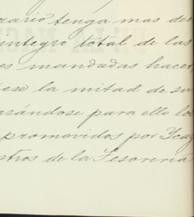 rario tenga mas de
integro total de las
es mandadas hacer
ese la mitad de su
asándose para ello los
promovidos por Fray
stros de la Tesoreria